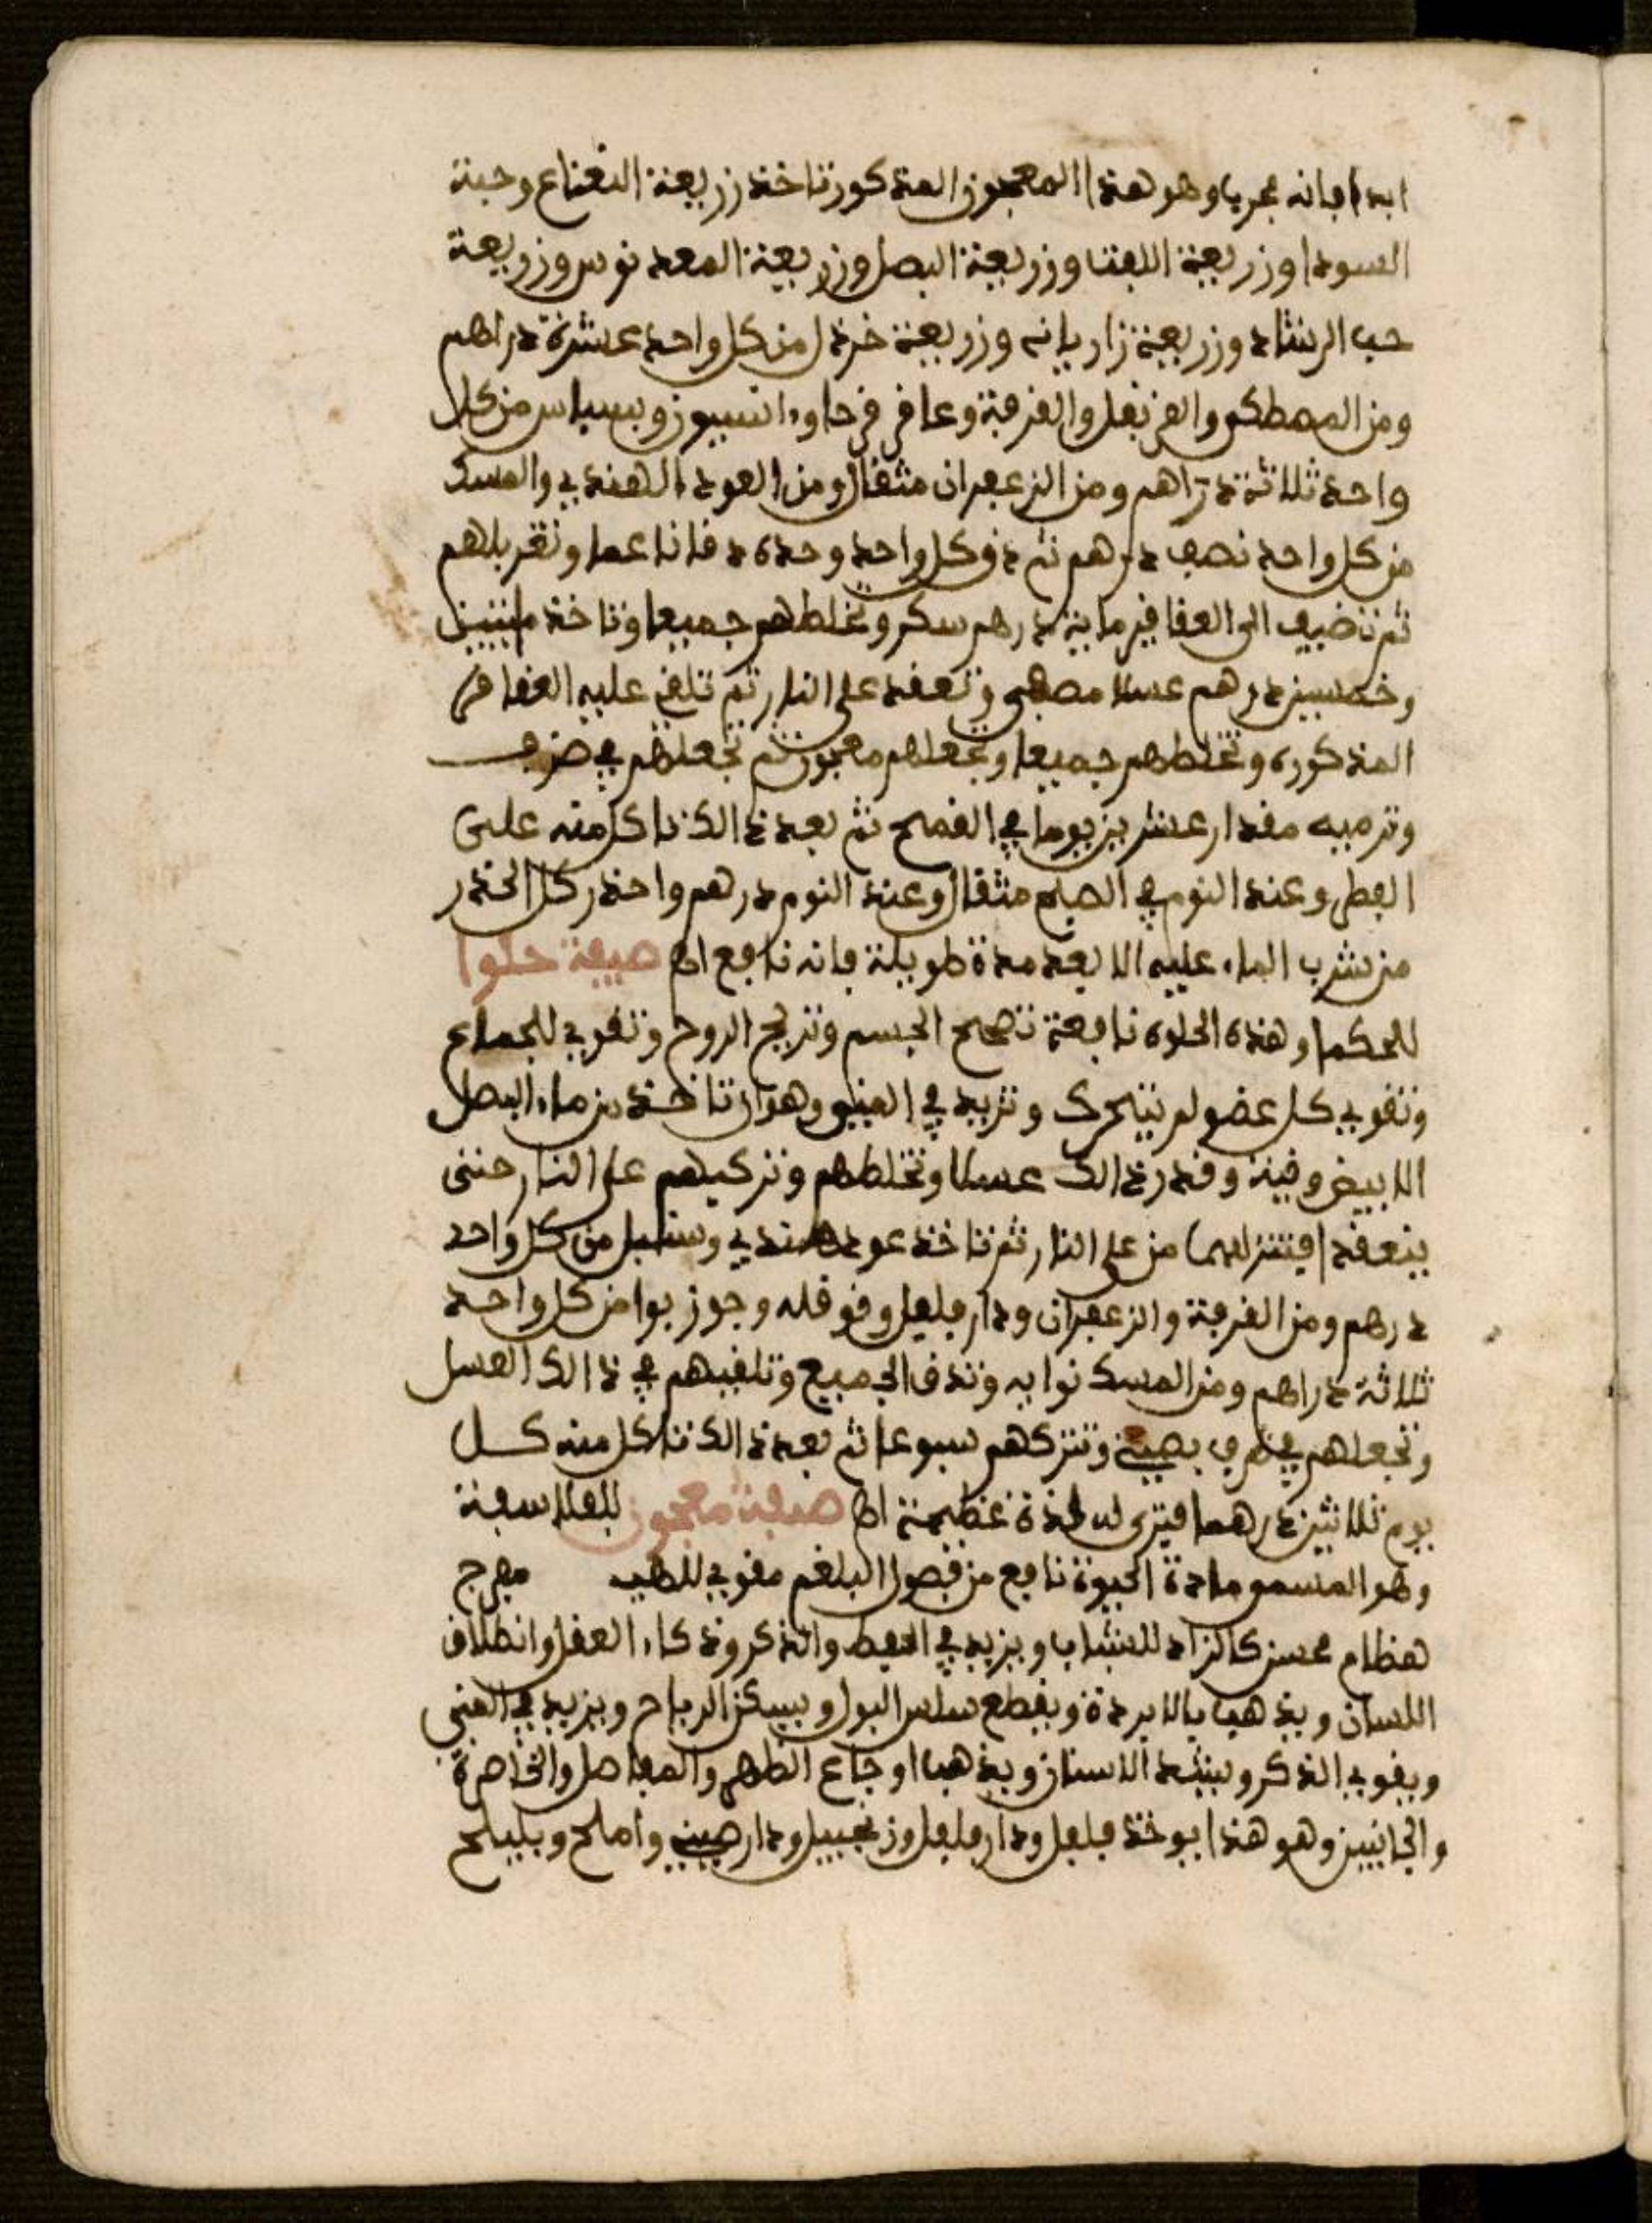 ابدا فانه مجرب وهو هذا المعجون المذكور تاخذ زريعة النعناع وحبة
السودا وزريعة اللفت وزريعة البصل وزريعة المعدنوس وزريعة
حب الرشاد وزريعة زاريانه وزريعة خردل من كل واحد عشرة دراهم
ومن المصطكى والقرنفل والقرفة وعاقر قرحا وانسيون وبسباس من كل
واحد ثلاثة دراهم ومن الزعفران مثقال ومن العود الهندي والمسك
من كل واحد نصف درهم ثم دق كل واحد وحده دقا ناعما وتغربلهم
ثم تضيف الى العقاقير ماية درهم سكر وتخلطهم جميعا وتاخذ مايتين
وخمسين درهم عسلا مصفى وتعقد على النار ثم تلقى عليه العقاقر
المذكوره وتخلطهم جميعا وتجعلهم معجون ثم تجعلهم في ضرف
وترميه مقدار عشرين يوما في القمح ثم بعد ذالك تاكل منه على
الفطر وعند النوم في الصباح مثقال وعند النوم درهم واحذر كل الحذر
من شرب الماء عليه الا بعد مدة طويلة فانه نافع اه صيفة حلوا
للحكما وهذه الحلوه نافعة تصحح الجسم وتريح الروح وتقوي للجماع
وتقوي كل عضو لم يتحرك وتزيد في المني وهو ان تاخذ من ماء البصل
الابيض وقية وقدر ذالك عسلا وتخلطهم وتركبهم على النار حتى
ينعقد فتنزلهما من على النار ثم تاخذ عود هندي وسنبل من كل واحد
درهم ومن القرفة والزعفران ودار فلفل وقوقله وجوز بوا من كل واحد
ثلاثة دراهم ومن المسك نوايه وتدق الجميع وتلقيهم في ذالك العسل
وتجعلهم في ضرف بصيني وتتركهم سبوعا ثم بعد ذالك تاكل منه كل
يوم ثلاثين درهما فترى له لذة عظيمة اه صفة معجون للفلاسفة
وهو المسمو مادة الحيوة نافع من فصول البلغم مقوي للهيب مفرج
هظام محسن كالزاد للشباب ويزيد في الحفظ والذكر وذكاء العقل وانطلاق
اللسان ويذهب بالابردة ويقطع سلس البول ويسكن الرياح ويزيد في المني
ويقوي الذكر ويشد الاسنان ويذهب اوجاع الظهر والمفاصل والخاصرة
والجانبين وهو هذا يوخذ فلفل ودار فلفل وزنجبيل ودار صيني واملج وبليلج